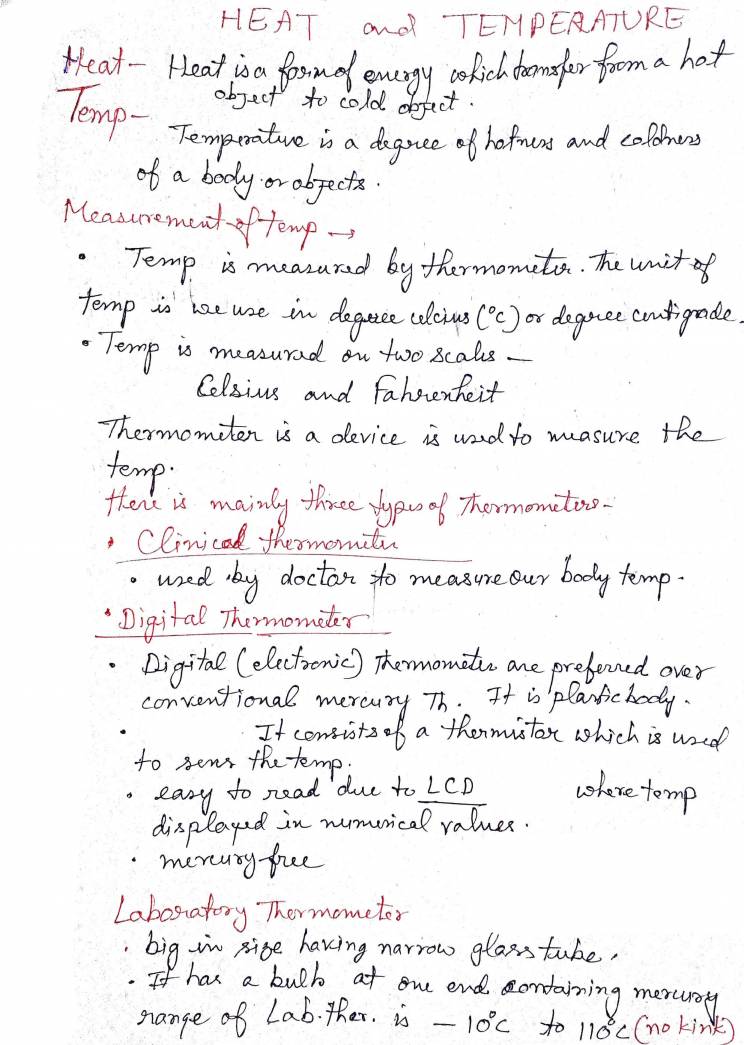 HEAT and TEMPERATURE
Heat - Heat is a form of energy which transfer from a hot
object to cold object.
Temp -
Temperature is a degree of hotness and coldness
of a body or objects.
Measurement of temp →
• Temp is measured by thermometer. The unit of
temp is we use in degree celcius (°C) or degree centigrade.
• Temp is measured on two scales -
Celsius and Fahrenheit
Thermometer is a device is used to measure the
temp.
There is mainly three types of Thermometers -
• Clinical thermometer
• used by doctor to measure our body temp.
• Digital Thermometer
• Digital (electronic) Thermometer are preferred over
conventional mercury Th. It is plastic body.
• It consists of a thermistor which is used
to sens the temp.
• easy to read due to LCD where temp
displayed in numerical values.
• mercury-free
Laboratory Thermometer
• big in size having narrow glass tube.
• It has a bulb at one end containing mercury
range of Lab. ther. is - 10°C to 110°C (no kink)